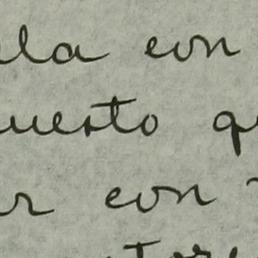 la con
uesto q
r con